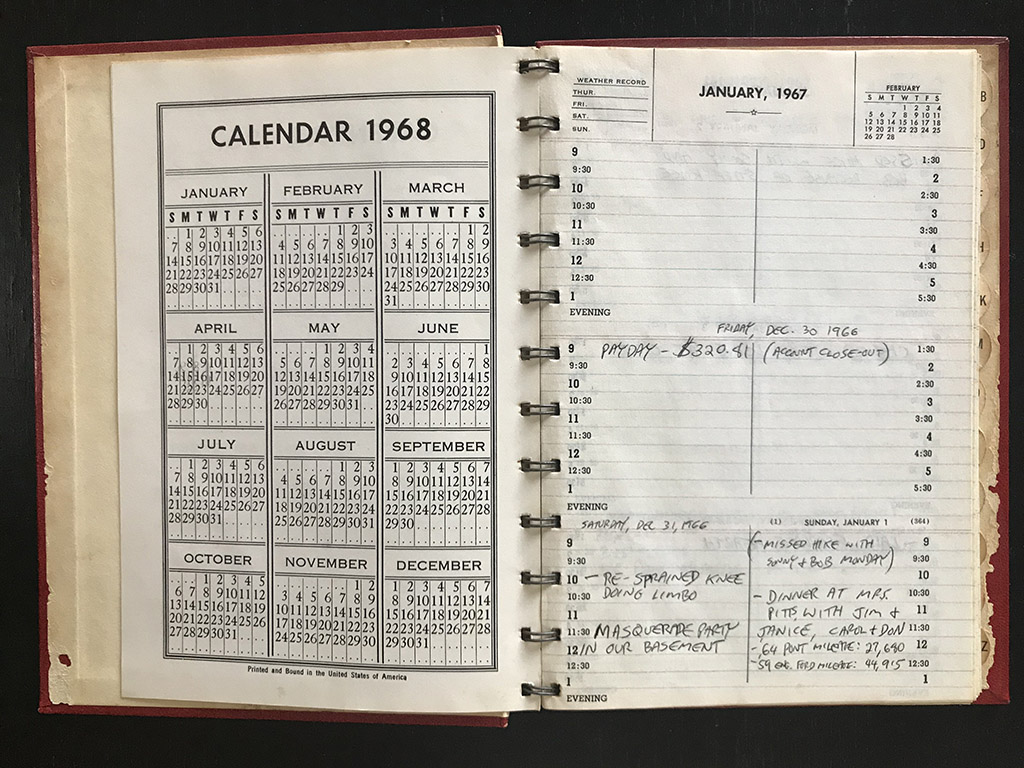 CALENDAR 1968
JANUARY
S M T W T F S
1 2 3 4 5 6
7 8 9 10 11 12 13
14 15 16 17 18 19 20
21 22 23 24 25 26 27
28 29 30 31
FEBRUARY
S M T W T F S
1 2 3
4 5 6 7 8 9 10
11 12 13 14 15 16 17
18 19 20 21 22 23 24
25 26 27 28 29
MARCH
S M T W T F S
1 2
3 4 5 6 7 8 9
10 11 12 13 14 15 16
17 18 19 20 21 22 23
24 25 26 27 28 29 30
31
APRIL
1 2 3 4 5 6
7 8 9 10 11 12 13
14 15 16 17 18 19 20
21 22 23 24 25 26 27
28 29 30
MAY
1 2 3 4
5 6 7 8 9 10 11
12 13 14 15 16 17 18
19 20 21 22 23 24 25
26 27 28 29 30 31
JUNE
1
2 3 4 5 6 7 8
9 10 11 12 13 14 15
16 17 18 19 20 21 22
23 24 25 26 27 28 29
30
JULY
1 2 3 4 5 6
7 8 9 10 11 12 13
14 15 16 17 18 19 20
21 22 23 24 25 26 27
28 29 30 31
AUGUST
1 2 3
4 5 6 7 8 9 10
11 12 13 14 15 16 17
18 19 20 21 22 23 24
25 26 27 28 29 30 31
SEPTEMBER
1 2 3 4 5 6 7
8 9 10 11 12 13 14
15 16 17 18 19 20 21
22 23 24 25 26 27 28
29 30
OCTOBER
1 2 3 4 5
6 7 8 9 10 11 12
13 14 15 16 17 18 19
20 21 22 23 24 25 26
27 28 29 30 31
NOVEMBER
1 2
3 4 5 6 7 8 9
10 11 12 13 14 15 16
17 18 19 20 21 22 23
24 25 26 27 28 29 30
DECEMBER
1 2 3 4 5 6 7
8 9 10 11 12 13 14
15 16 17 18 19 20 21
22 23 24 25 26 27 28
29 30 31
Printed and Bound in the United States of America
WEATHER RECORD
THUR.
FRI.
SAT.
SUN.
JANUARY, 1967
FEBRUARY
S M T W T F S
1 2 3 4
5 6 7 8 9 10 11
12 13 14 15 16 17 18
19 20 21 22 23 24 25
26 27 28
9 1:30
9:30 2
10 2:30
10:30 3
11 3:30
11:30 4
12 4:30
12:30 5
1 5:30
EVENING
FRIDAY, DEC. 30 1966
9 PAYDAY - $320.81 (ACCOUNT CLOSE-OUT) 1:30
9:30 2
10 2:30
10:30 3
11 3:30
11:30 4
12 4:30
12:30 5
1 5:30
EVENING
SATURDAY, DEC 31, 1966
9
9:30
10 - RE-SPRAINED KNEE
10:30 DOING LIMBO
11
11:30 MASQUERADE PARTY
12 IN OUR BASEMENT
12:30
1
EVENING
(1) SUNDAY, JANUARY 1 (364)
(- MISSED HIKE WITH 9
SONNY & BOB MONDAY) 9:30
10
- DINNER AT MRS 10:30
PITTS WITH JIM & 11
JANICE, CAROL + DON 11:30
- 64 PONT MILEAGE: 27,680 12
- 59 ENG. FORD MILEAGE: 44,915 12:30
1
B
D
F
H
K
M
Z